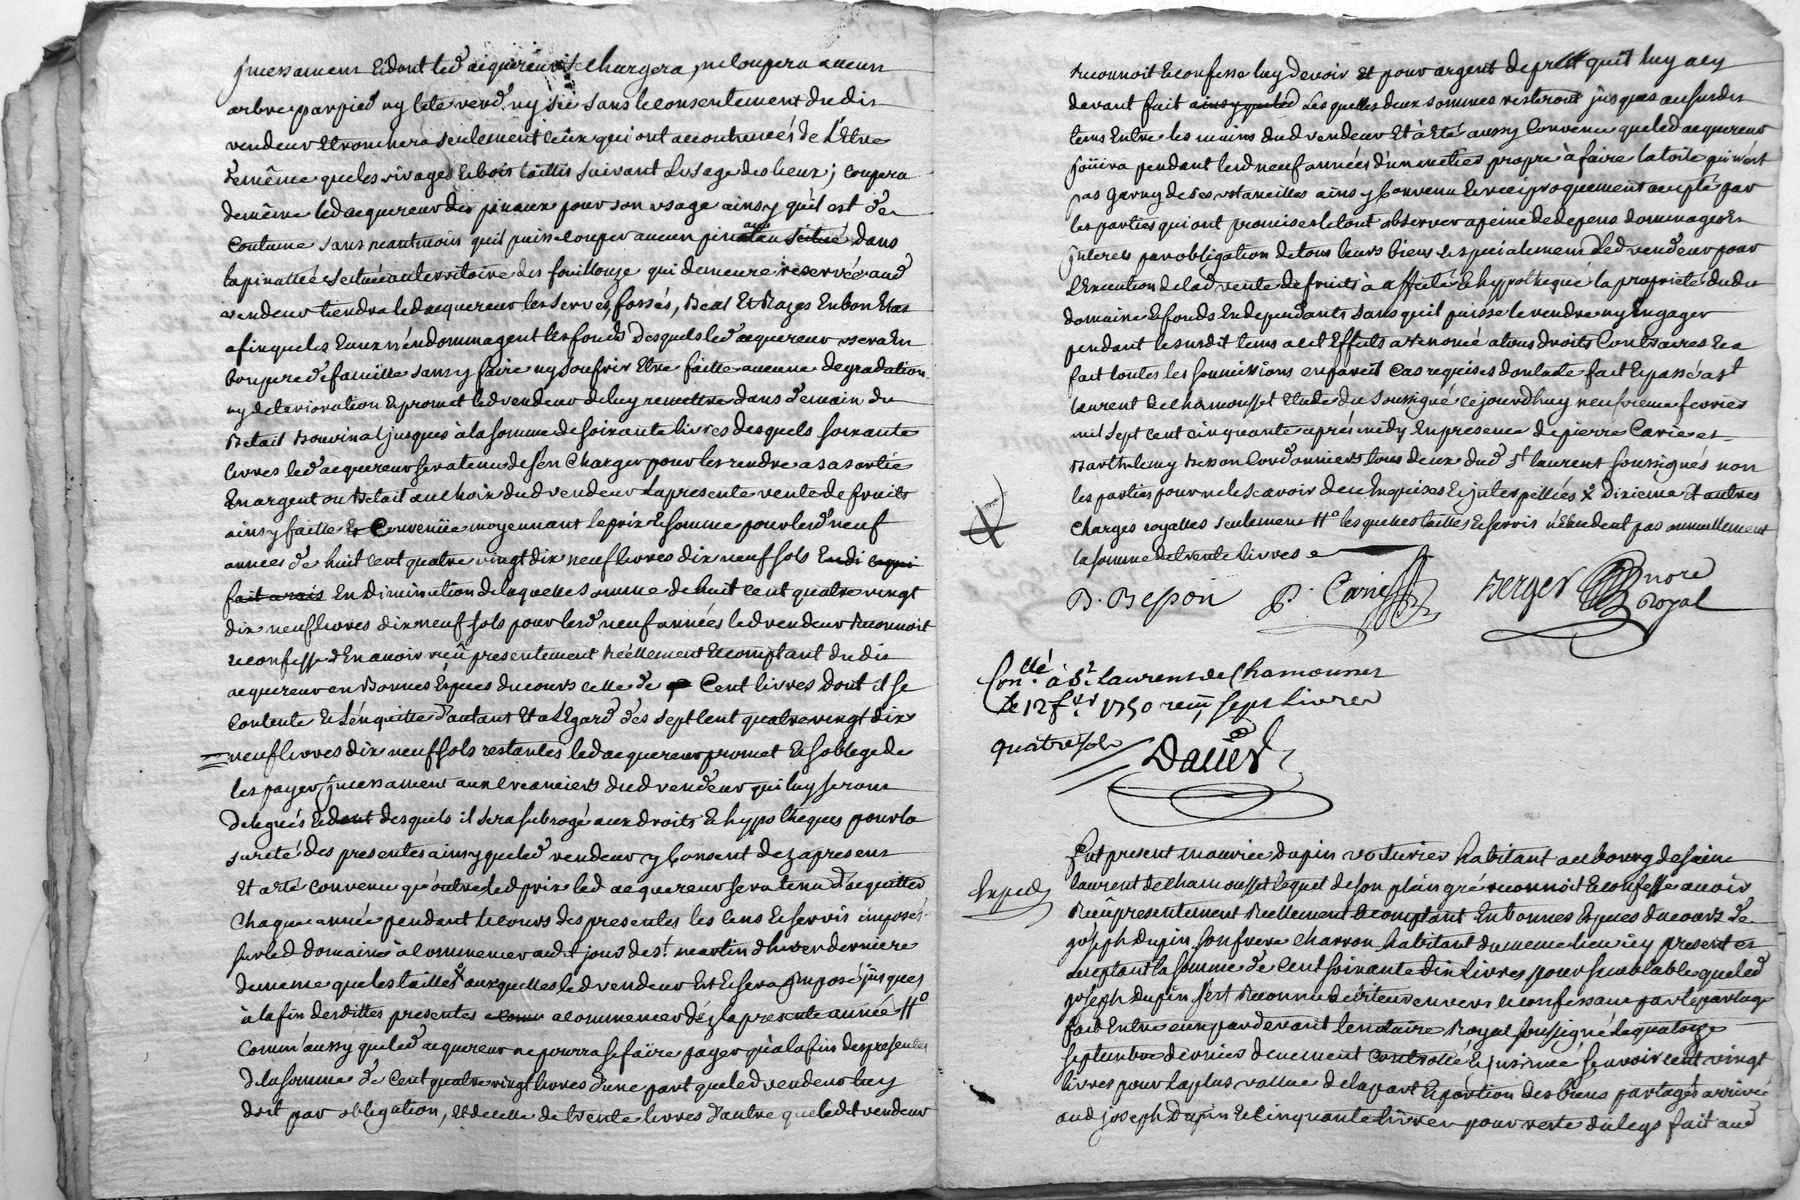 jncessament Et dont led acquereur se Chargera, ne Coupera aucun
arbre par pied ny tete verd ny sec sans le consentement dudit
vendeur Et tronchera seulement Ceux qui ont accoutumés de L'Etre
de même que les rivages et bois taillis suivant L'usage des lieux; Coupera
de même led acquereur des pinaux pour son usage ainsy qu'il est de
Coutume sans neantmoins qu'il puisse couper aucun pin dans
la pinattée scituée au territoire des fouillouze qui demeure reservée aud
vendeur tiendra led acquereur les serves, fossés, Beal Et Razes En bon Etat
afin que les Eaux n'endommagent les fonds desquels led acquereur usera En
bon pere de famille sans y faire ny soufrir Etre faitte aucune degradation
ny deterioration Et promet led vendeur de luy remettre dans demain du
Betail Bouvinal jusques à la somme de soixante livres desquels soixante
livres led acquereur sera tenu de s'en Charger pour les rendre a sa sortie
En argent ou Betail au choix dud vendeur La presente vente de fruits
ainsy faitte Et Convenüe moyennant le prix Et somme pour lesd neuf
années de huit cent quatre vingt dix neuf livres dix neuf sols
En diminution de laquelle somme de huit Cent quatre vingt
dix neuf livres dix neuf sols pour lesd neuf années led vendeur Reconnoit
Et confesse d'En avoir reçû presentement Réellement Et comptant dudit
acquereur en Bonnes Especes du cours celle de Cent livres dont il se
Contente Et L'en quitte d'autant Et a L'Egard des sept Cent quatre vingt dix
neuf livres dix neuf sols restantes led acquereur promet Et s'oblege de
les payer jncessament aux Creanciers dud vendeur qui luy seront
delegués Et desquels il sera subrogé aux droits Et hypotheques pour la
sureté des presentes ainsy que led vendeur y Consent dez a present
Et a Eté Convenu qu'outre led prix led acquereur sera tenu d'acquitter
Chaque année pendant le cours des presentes les Cens Et servis imposés
sur led domaine à Commencer aud jour de st martin d'hiver derniere
de meme que les tailles auxquelles led vendeur Est Et sera jmposé jusques
à la fin desdittes presentes a commencer déz la presente année #
Comm'aussy que led acquereur ne pourra se faire payer qu'a la fin des presentes
de la somme de Cent quatre vingt livres d'une part que led vendeur luy
doit par obligation, Et de celle de trente livres d'autre que ledit vendeur
Reconnoit Et confesse luy devoir Et pour argent de prest qu'il luy a cy
devant fait Lesquelles deux sommes resteront jusques au susdit
tems Entre les mains dud vendeur Et à Eté aussy Convenu que led acquereur
joüira pendant lesd neuf années d'un métier propre à faire la toile qui n'est
pas garny de ses ustancilles ainsy Convenu Et reciproquement accepté par
les parties qui ont promises le tout observer a peine de depens dommages Et
jnterets par obligation de tous leurs biens Et specialement Led vendeur pour
L'Execution de lad vente de fruits à affecté Et hypothequé la proprieté dudit
domaine Et fonds En dependants sans qu'il puisse le vendre ny Engager
pendant le susdit tems a cet Effet a renoncé a tous droits Contraires Et a
fait toutes les soumissions en pareil Cas requises dont acte fait Et passé a st
laurent de Chamousset Etude du soussigné ce jourd'huy neufvieme fevrier
mil sept cent cinquante après midy En presence de pierre Carie et
Barthelemy Besson Cordonniers tous deux dud st laurent soussignés non
les parties pour ne le sçavoir de ce Enquises Et jnterpellées dixieme Et autres
Charges royalles seulement # lesquelles tailles Et servis n'Excedent pas annuellement
la somme de trente livres
B. Besson P. Carie Berger nore
Royal
Conllé à St laurent de Chamousset
le 12 fer 1750 reçu sept livres
quatre sols
Daved
Exped
Fut present maurice dupin voiturier habitant au bourg de saint
laurent de Chamousset lequel de son plain gré reconnoit Et confesse avoir
Reçû presentement Réellement Et comptant En bonnes Espéces du cours de
joseph dupin son frere Charron habitant du meme lieu icy present et
acceptant la somme de Cent soixante dix livres pour semblable que led
joseph dupin s'est Reconnu debiteur envers le confessant par le partage
fait Entre eux par devant le notaire Royal soussigné le quatorze
septembre dernier deuement Controllé Et jnsinué sçavoir cent vingt
livres pour la plus vallue de la part Et portion des biens partagés arrivée
aud joseph dupin Et Cinquante livres pour reste du legs fait aud